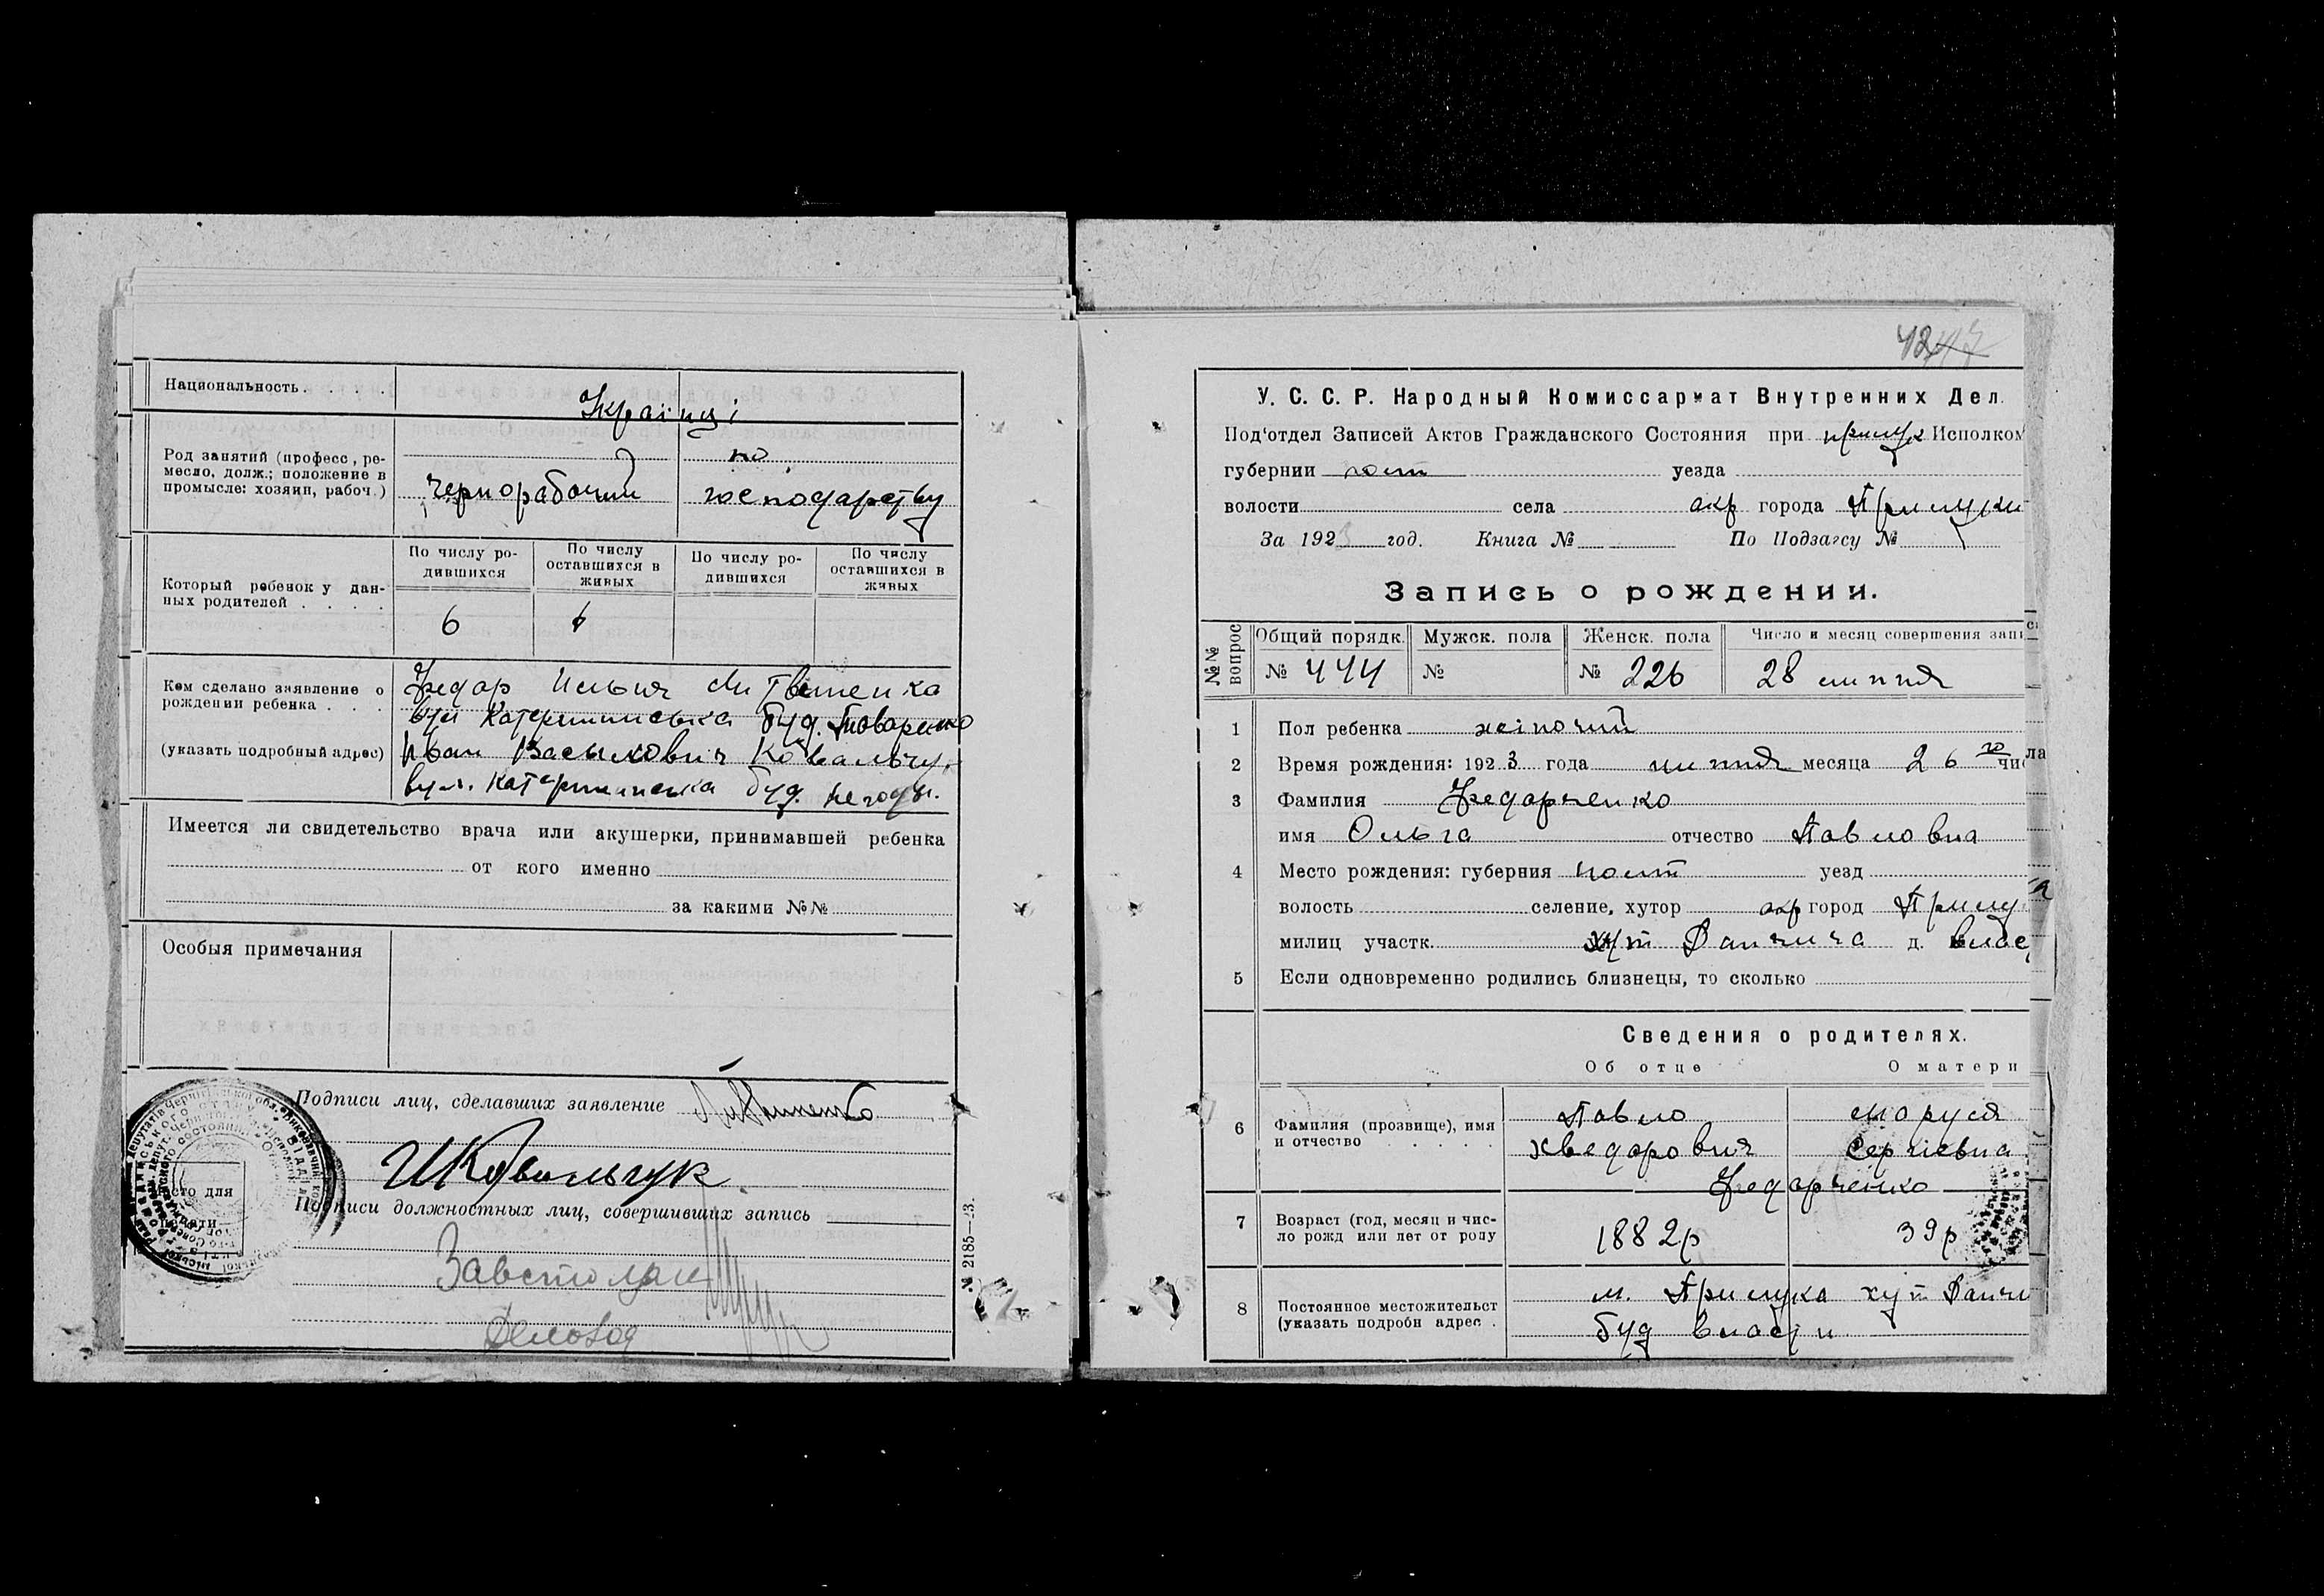 Национальность . . . .
Українці
Род занятий (професс, ре-
месло, долж.; положение в
промысле: хозяин, рабоч.)
Чернорабочий
по
господарству
Который ребенок у дан-
ных родителей . . . .
По числу ро-
дившихся
По числу
оставшихся в
живых
По числу ро-
дившихся
По числу
оставшихся в
живых
6
Кем сделано заявление о
рождении ребенка . . .
(указать подробный адрес)
Федор Ильич Литвиненко
вул Катерининська буд. Товаренко
Иван Васильович Ковальчу
вул. Катерининська буд. Негоды.
Имеется ли свидетельство врача или акушерки, принимавшей ребенка
от кого именно
за какими №№
Особыя примечания
Подписи лиц, сделавших заявление Литвиненко
место для
печати
ИКовальчук
Подписи должностных лиц, совершивших запись
Завстолом
Деловод
№ 2185—23.
42
У. С. С. Р. Народный Комиссариат Внутренних Дел.
Под'отдел Записей Актов Гражданского Состояния при Прилук Исполком
губернии полт уезда
волости села окр города Прилуки
За 1923 год. Книга № По Подзагсу №
Запись о рождении.
№№ вопрос
Общий порядк. Мужск. пола Женск. пола Число и месяц совершения запи
№ 444 № № 226 28 липня
1 Пол ребенка жіночий
2 Время рождения: 1923 года липня месяца 26 го числа
3 Фамилия Федорченко
имя Ольга отчество Павловна
4 Место рождения: губерния Полт уезд
волость селение, хутор окр город Прилука
милиц участк. хут Данчича д. влас
5 Если одновременно родились близнецы, то сколько
Сведения о родителях.
Об отце О матери
6 Фамилия (прозвище), имя
и отчество . . . . .
Павло
Хведорович
Маруся
Сергіевна
Федорченко
7 Возраст (год, месяц и чис-
ло рожд или лет от роду
1882р 39р
8 Постоянное местожительст
(указать подробн адрес .
м. Прилука хут Данчи
буд власти